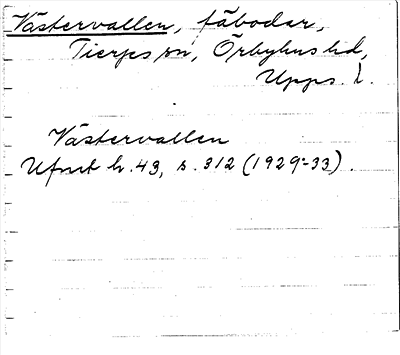 Västervallen, fäbodar,
Tierps sn, Örbyhus hd,
Upps. l.
Västervallen
Ufmt h. 43, s. 312 (1929-33).